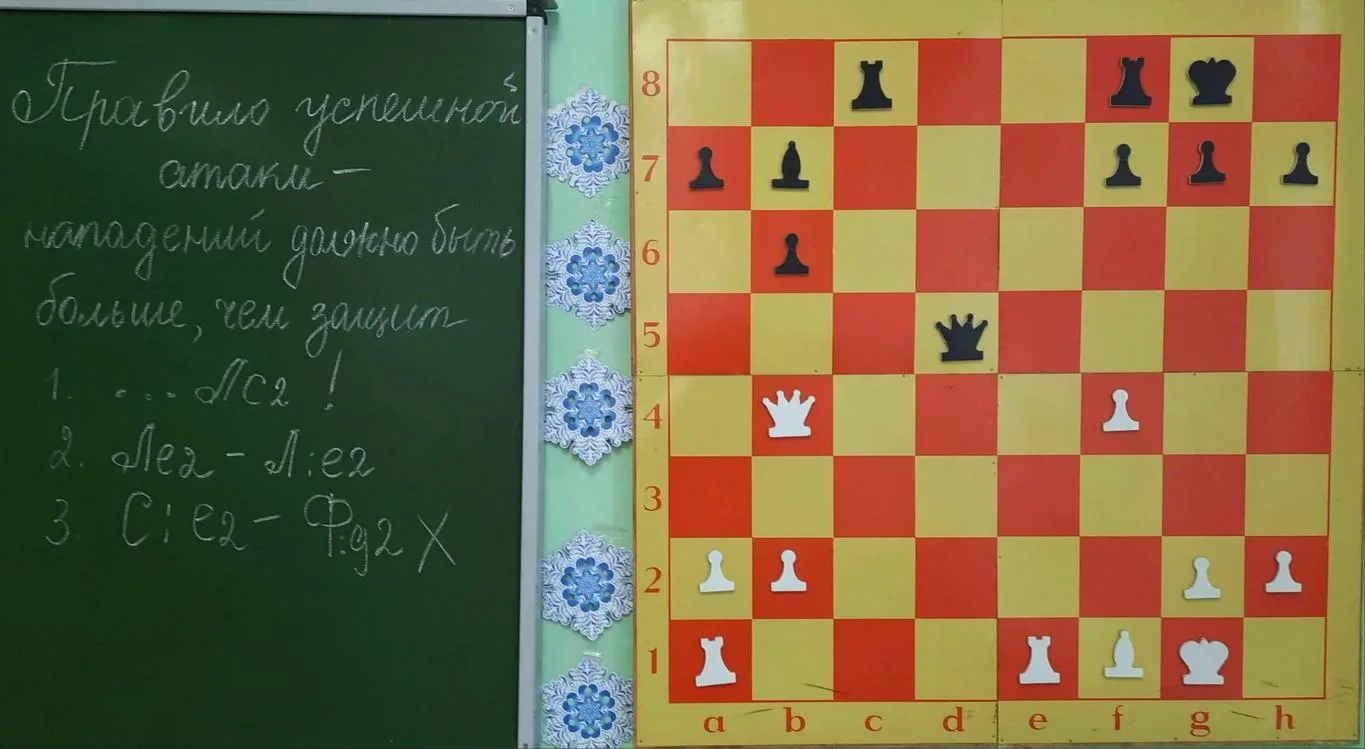 Правило успешной
атаки —
нападений должно быть
больше, чем защит
1. ... Лc2 !
2. Лe2 – Л:e2
3. С:e2 – Ф:g2 X
8
7
6
5
4
3
2
1
a b c d e f g h